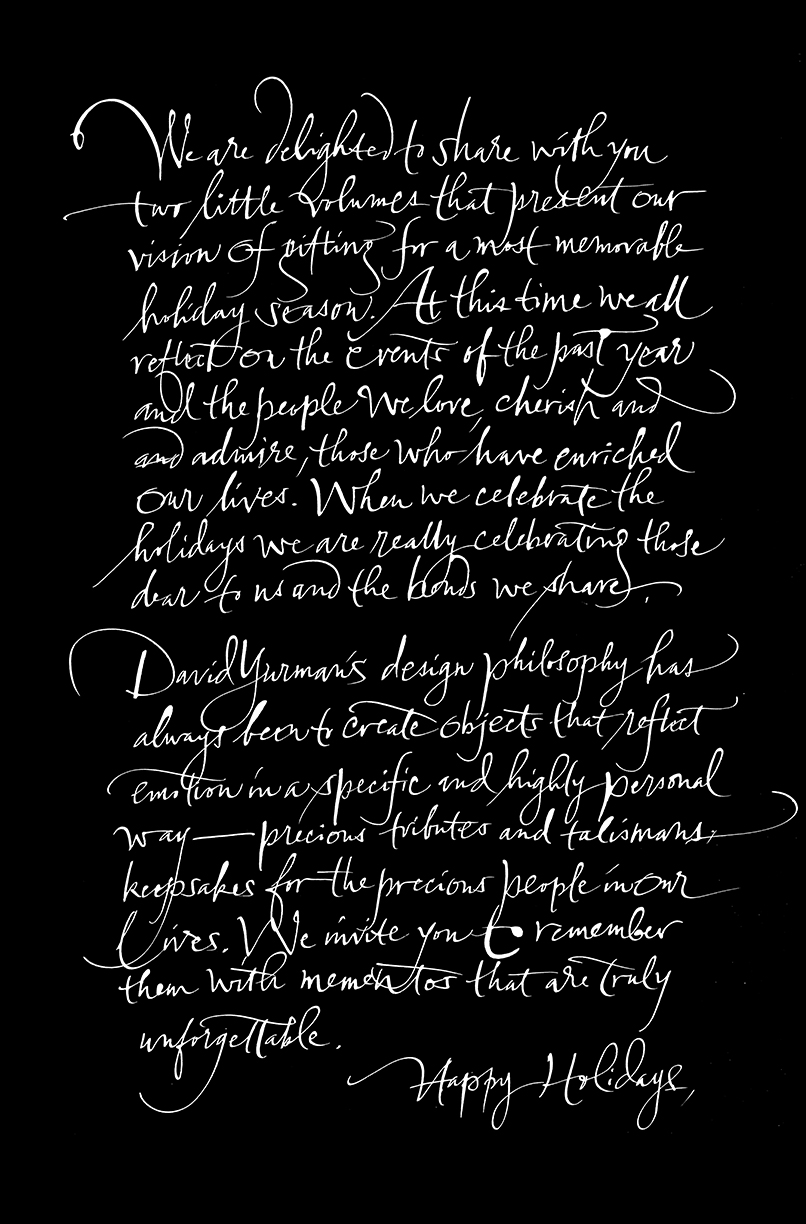 We are delighted to share with you
two little volumes that present our
vision of gifting for a most memorable
holiday season. At this time we all
reflect on the events of the past year
and the people we love, cherish and
and admire, those who have enriched
our lives. When we celebrate the
holidays we are really celebrating those
dear to us and the bonds we share.
David Yurman's design philosophy has
always been to create objects that reflect
emotion in a specific and highly personal
way—precious tributes and talismans,
keepsakes for the precious people in our
lives. We invite you to remember
them with mementos that are truly
unforgettable.
Happy Holidays,